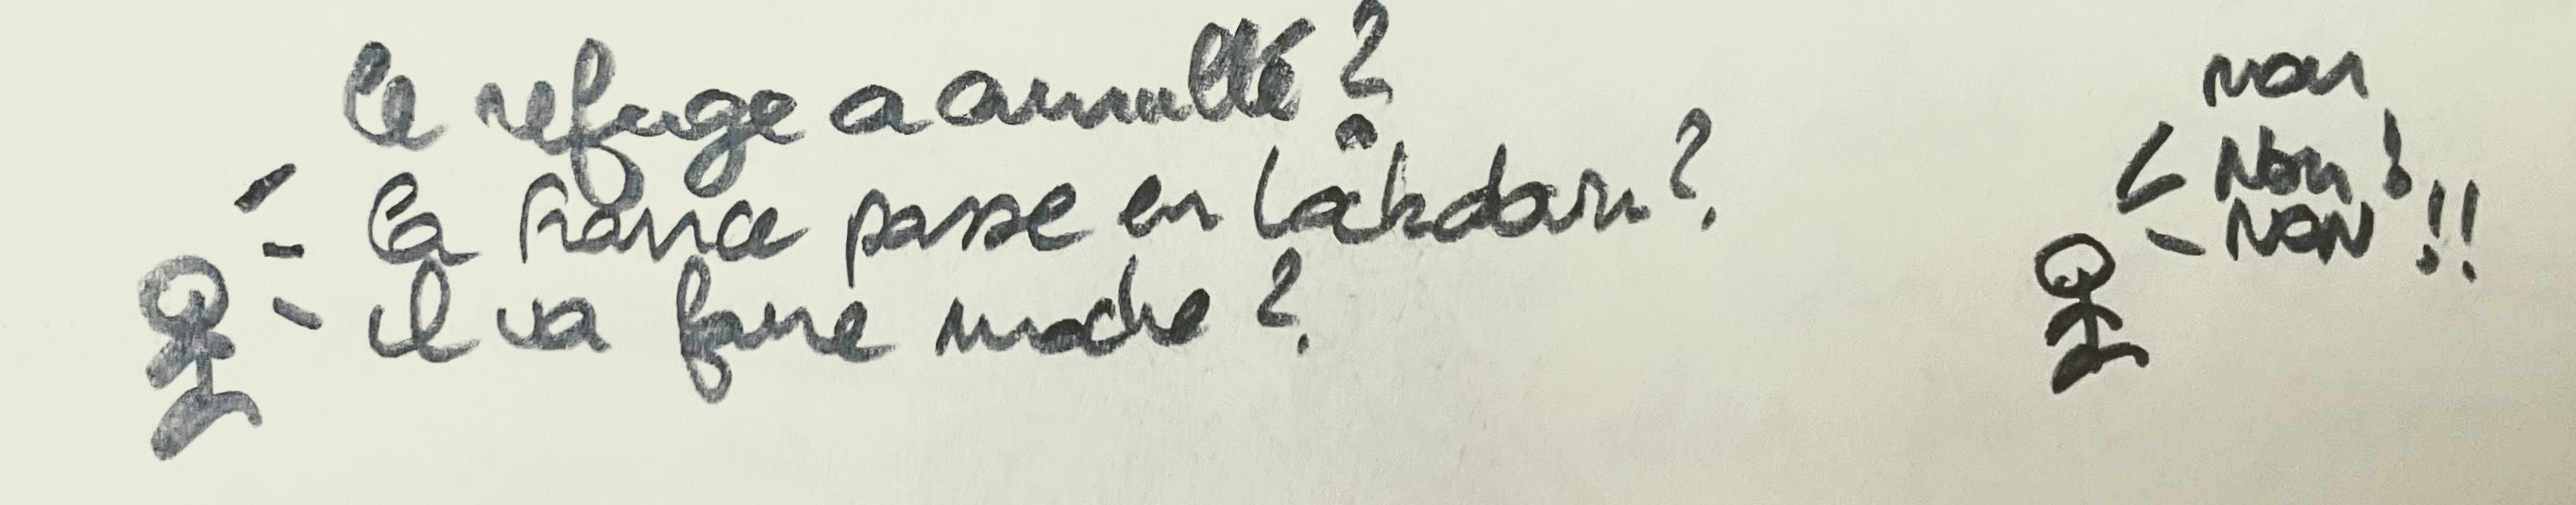 le refuge a annullé ?
la France passe en lockdown ?
il va faire moche ?
non
Non !
NON !!